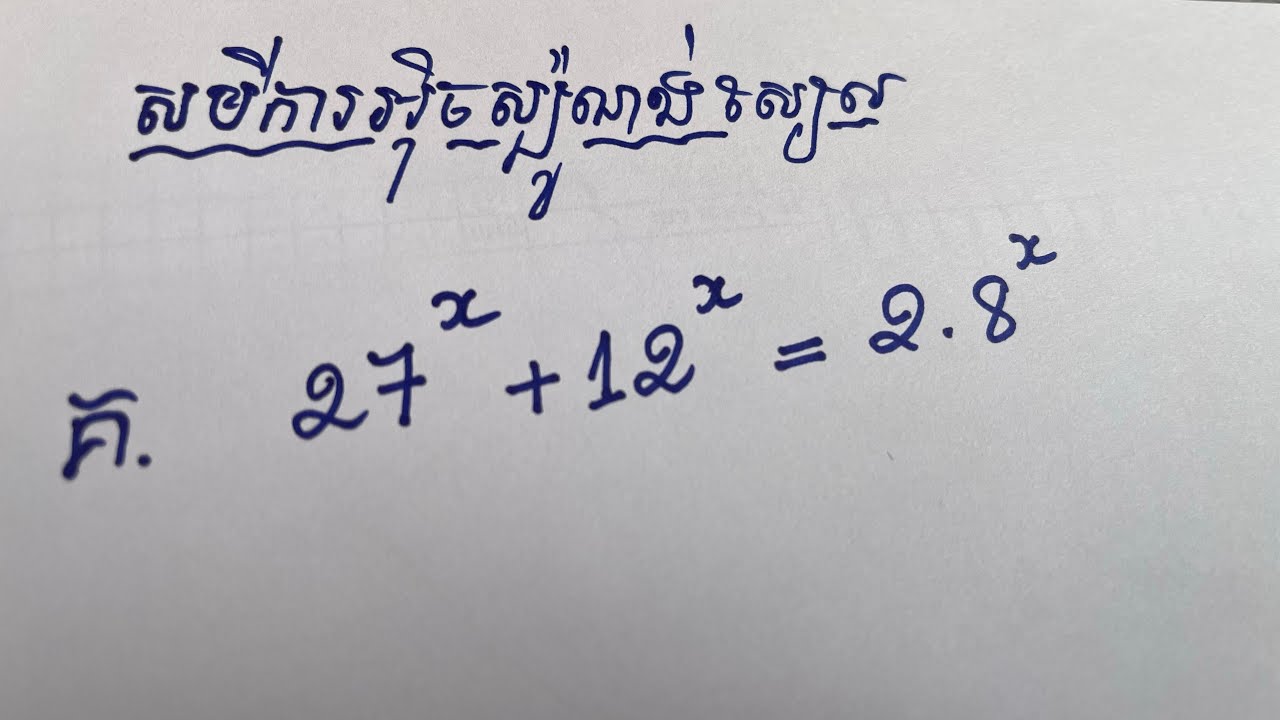 សមីការអ៊ិចស្ប៉ូណង់ស្យែល
គ. 27^x + 12^x = 2.8^x